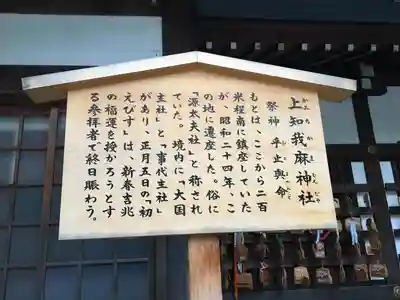 上知我麻神社
かみ ち か ま じんじゃ
祭神 乎止與命
もとは、ここから二百
米程南に鎮座していた
が、昭和二十四年、こ
の地に遷座した。俗に
「源太夫社」と称され
ていた。境内に「大国
主社」と「事代主社」
があり、正月五日の「初
えびす」は、新春吉兆
の福運を授かろうとす
る参拝者で終日賑わう。